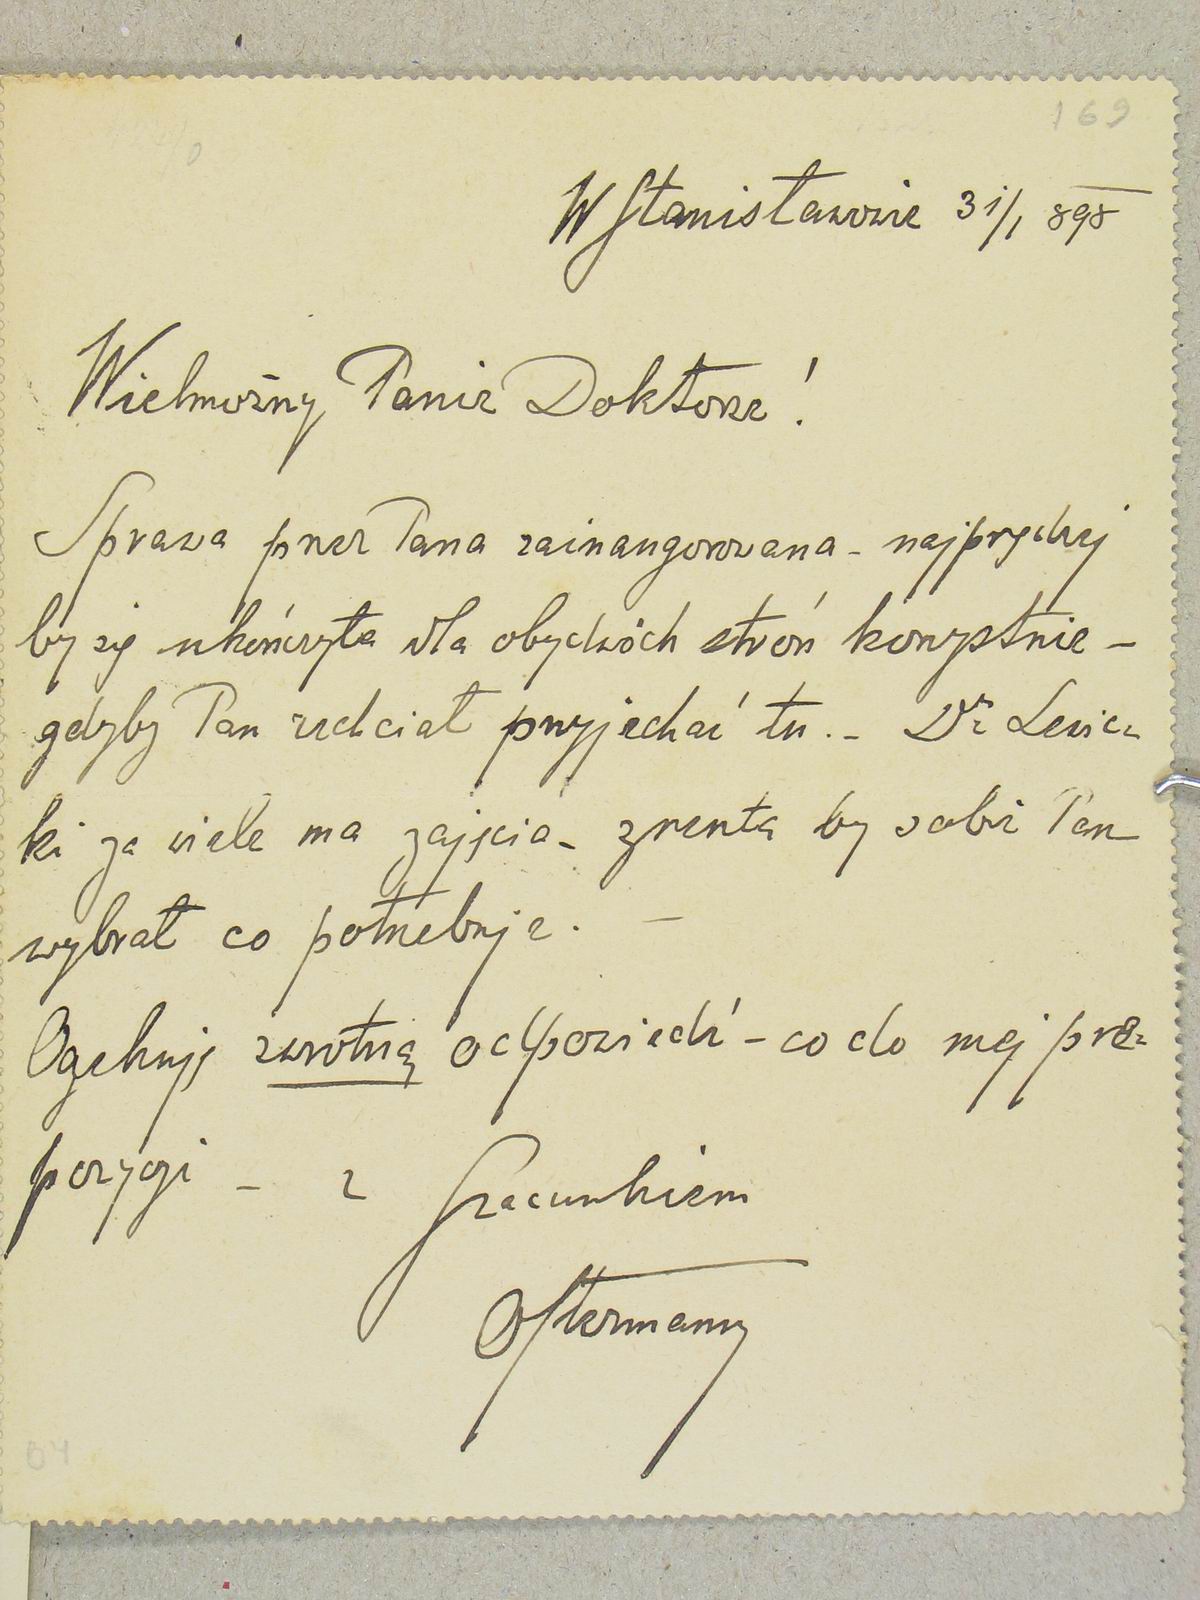 169
W Stanisławowie 31/1 898
Wielmożny Panie Doktorze!
Sprawa przez Pana zainaugorowana - najprędzej
by się ukończyła dla obydwóch stron korzystnie -
gdyby Pan zechciał przyjechać tu. - Dr Lewic-
ki za wiele ma zajęcia - zresztą by sobie Pan
wybrał co potrzebuje. -
Oczekuję zwrotną odpowiedź - co do mej pro-
pozycji - z Szacunkiem
Ostermann
04